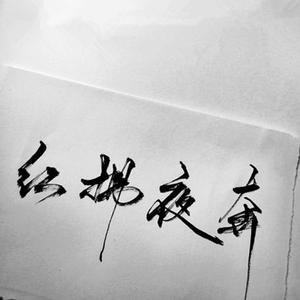 红拂夜奔